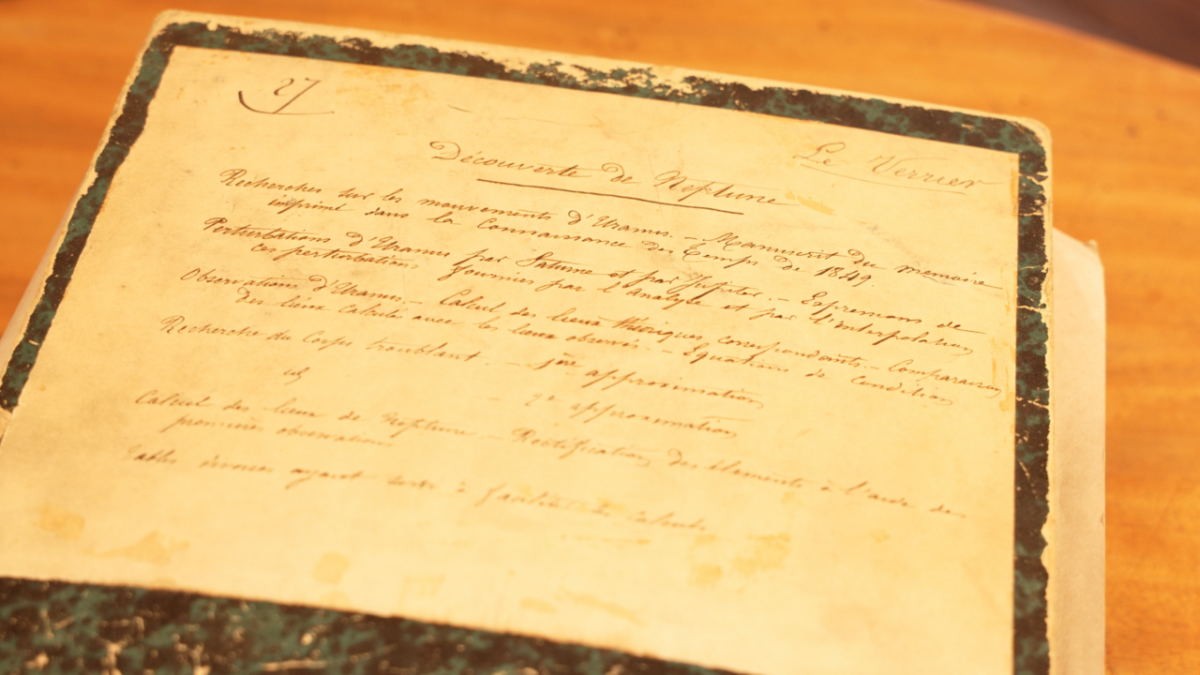 27
Le Verrier
Découverte de Neptune
Recherches sur les mouvements d'Uranus. – Manuscrit du mémoire
imprimé dans la Connaissance des Temps de 1849.
Perturbations d'Uranus par Saturne et par Jupiter. – Expressions de
ces perturbations fournies par l'analyse et par l'interpolation
Observations d'Uranus. – Calcul des lieux théoriques correspondants. – Comparaison
des lieux calculés avec les lieux observés – Equations de condition
Recherche du Corps troublant – 1ère approximation
id – 2e approximation
Calcul des lieux de Neptune – Rectification des éléments à l'aide des
premières observations
Tables diverses ayant servi à faciliter les calculs